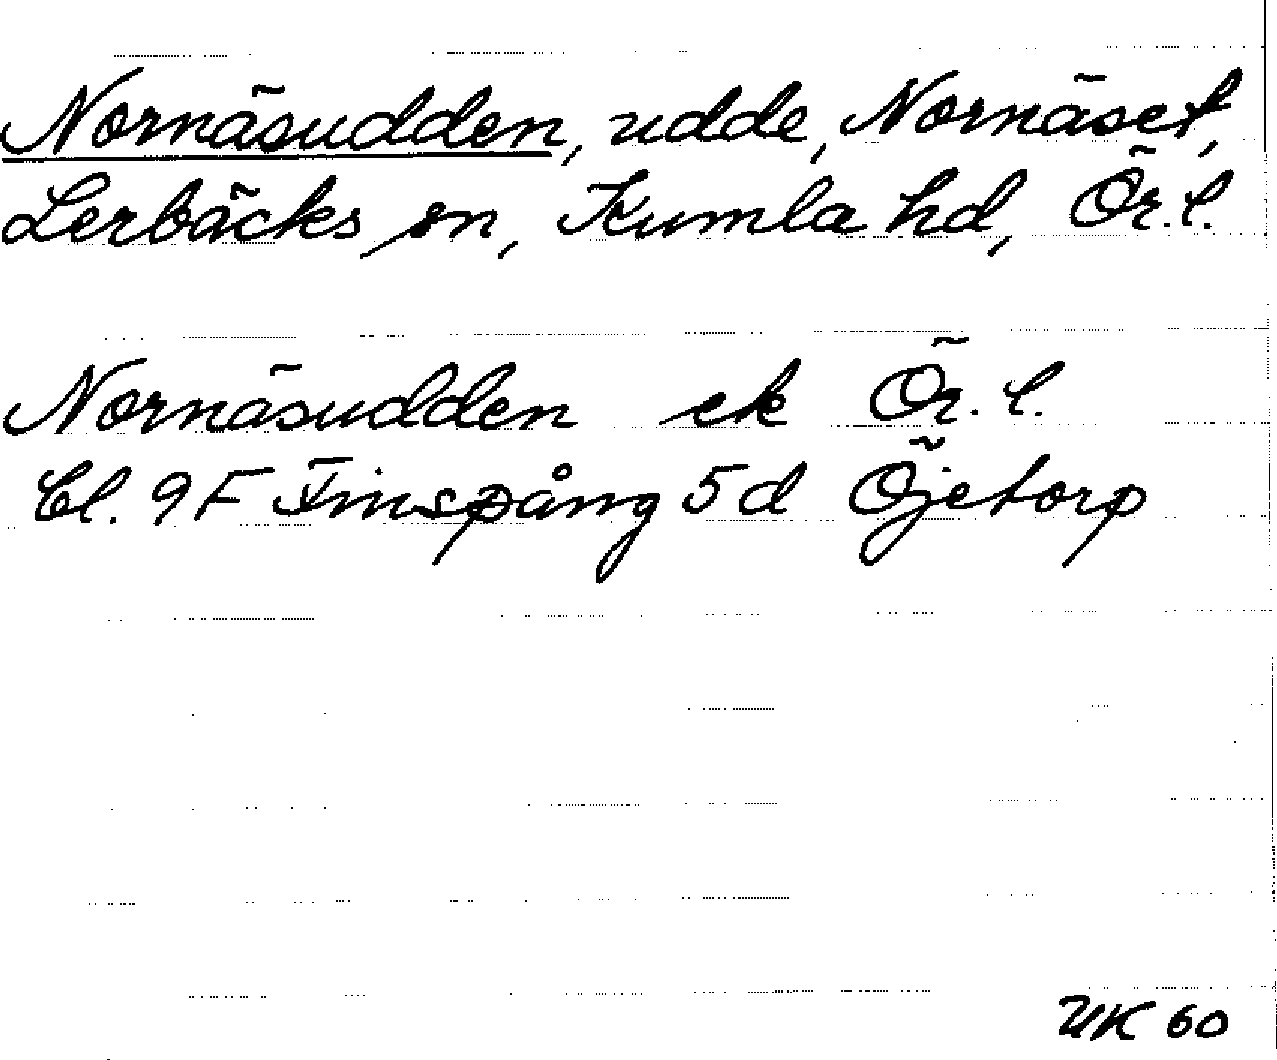 Nornäsudden, udde, Nornäset,
Lerbäcks sn, Kumla hd, Ör. l.
Nornäsudden ek Ör. l.
Bl. 9F Finspång 5d Öjetorp
UK 60